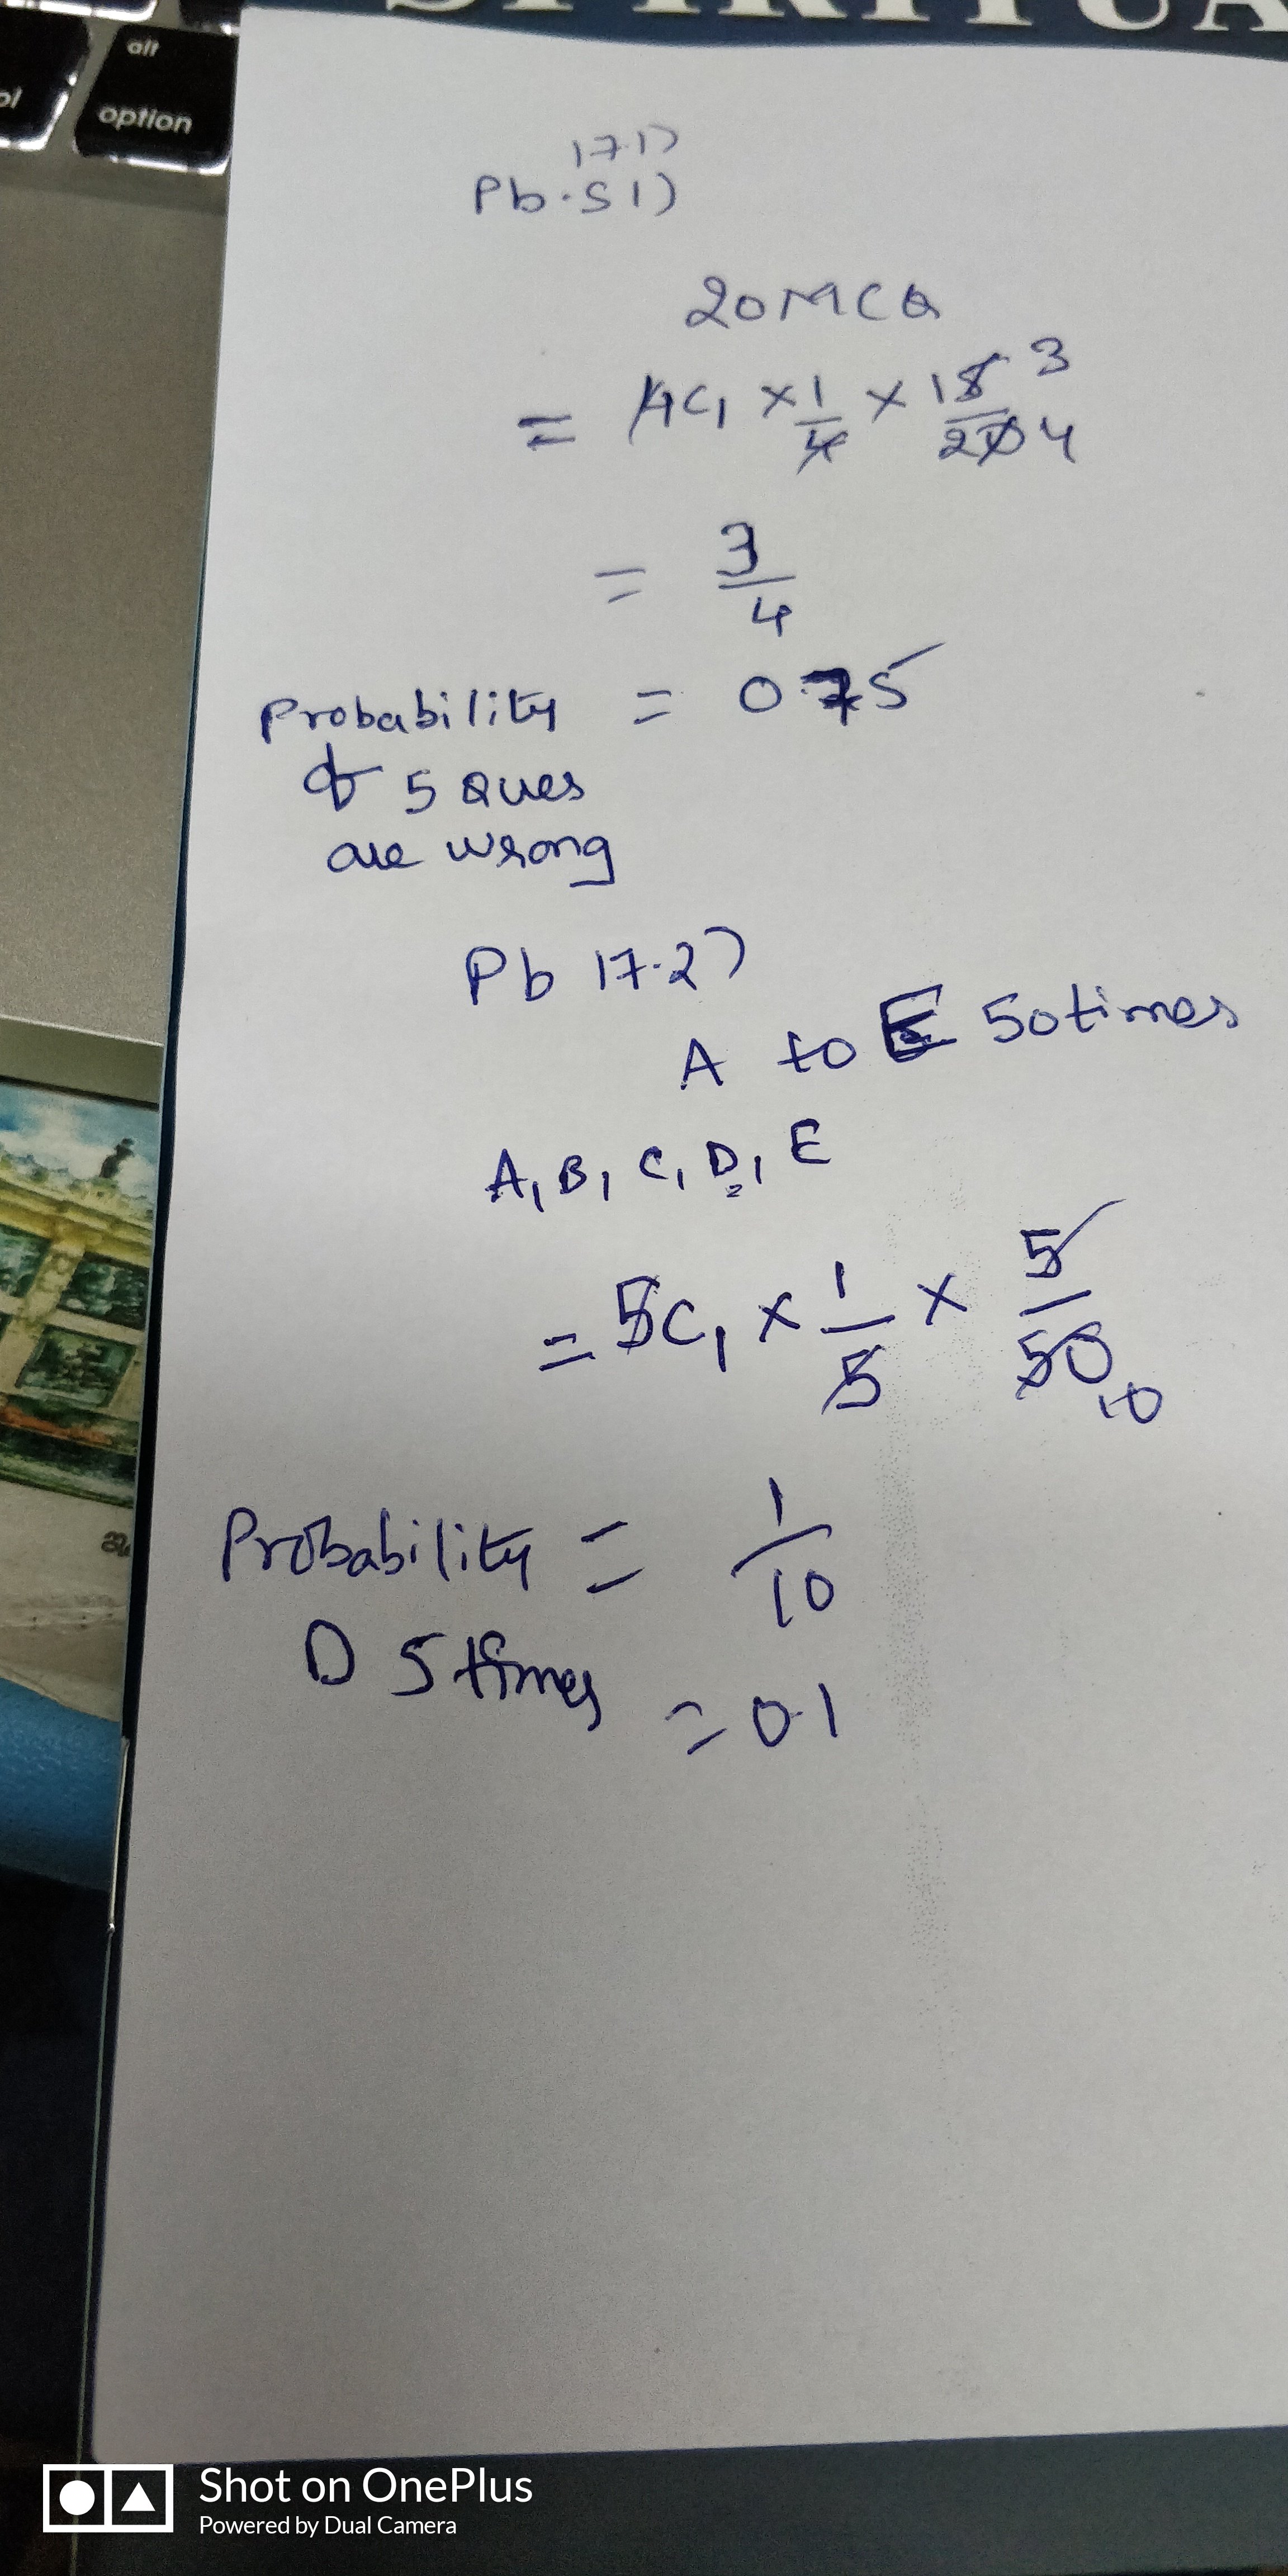 SPIRITUA
alt
option
17.1)
Pb.51)
20 MCQ
= 4C1 × 1/4 × 15/20 3 4
= 3/4
Probability = 0.75
of 5 Ques
are wrong
Pb 17.2)
A to E 50 times
A, B, C, D, E
= 5C1 × 1/5 × 5/50 10
Probability = 1/10
D 5 times = 0.1
Shot on OnePlus
Powered by Dual Camera